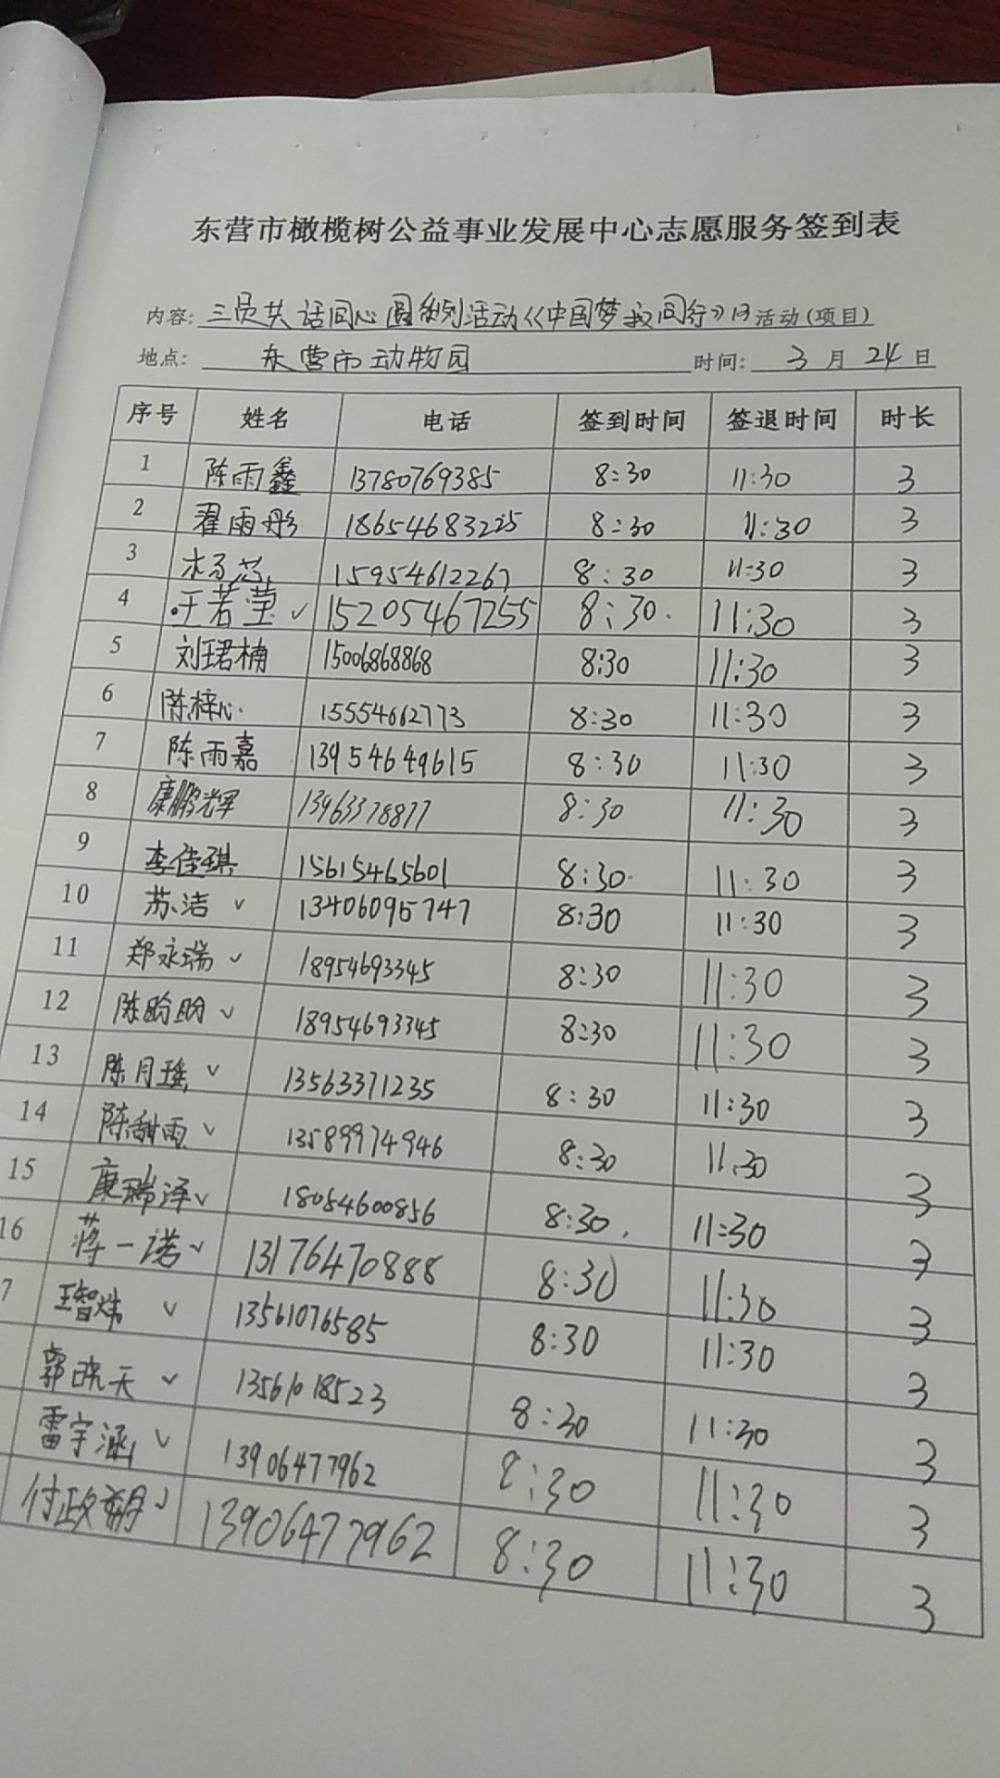 东营市橄榄树公益事业发展中心志愿服务签到表
内容: 三员共话同心圆系列活动《中国梦我同行》 活动(项目)
地点: 东营市动物园 时间: 3月24日
序号 姓名 电话 签到时间 签退时间 时长
1 陈雨鑫 13780769385 8:30 11:30 3
2 翟雨彤 18654683225 8:30 11:30 3
3 15954612267 8:30 11:30 3
4 王若莹 ✓ 15205467255 8:30 11:30 3
5 刘珺楠 15006868868 8:30 11:30 3
6 陈梓心 15554662773 8:30 11:30 3
7 陈雨嘉 13954649615 8:30 11:30 3
8 康鹏辉 13963378877 8:30 11:30 3
9 李佳琪 15615465601 8:30 11:30 3
10 苏洁 ✓ 13406095747 8:30 11:30 3
11 郑永瑞 ✓ 18954693345 8:30 11:30 3
12 陈盼盼 ✓ 18954693345 8:30 11:30 3
13 陈月瑶 ✓ 13563371235 8:30 11:30 3
14 陈甜雨 ✓ 13589974946 8:30 11:30 3
15 康瑞泽 ✓ 18054600856 8:30 11:30 3
16 蒋一诺 ✓ 13176470888 8:30 11:30 3
7 王智炜 ✓ 13561076585 8:30 11:30 3
郭晓天 ✓ 13561018523 8:30 11:30 3
雷宇涵 ✓ 13906477962 8:30 11:30 3
付政朔 ✓ 13906477962 8:30 11:30 3